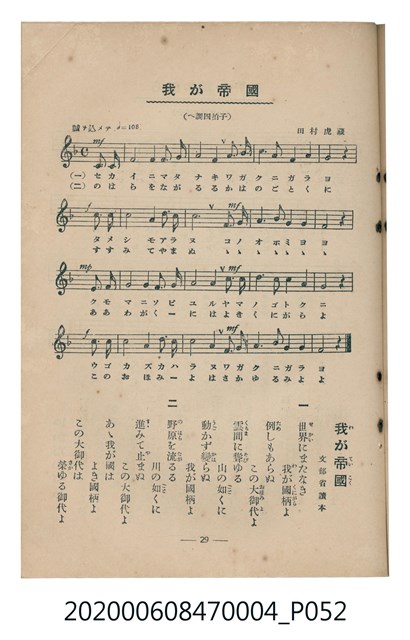 我が帝國
(ヘ調四拍子)
田村虎藏
誠ヲ込メテ ♩=108
(一) セカイニマタナキワガクニガラヨ
(二) のはらをながるるかはのごとくに
タメシモアラヌ コノオホミヨヨ
すすみてやまぬ
クモマニソビユルヤマノゴトクニ
ああわがくにはよきくにがらよ
ウゴカズカハラヌワガクニガラヨ
このおほみよはさかゆるみよよ
我が帝國
文部省讀本
一
世界にまたなき
我が國柄よ
例しもあらぬ
この大御代よ
雲間に聳ゆる
山の如くに
動かず變らぬ
我が國柄よ
二
野原を流るる
川の如くに
進みて止まぬ
この大御代よ
あゝ我が國は
よき國柄よ
この大御代は
榮ゆる御代よ
— 29 —
202000608470004_P052